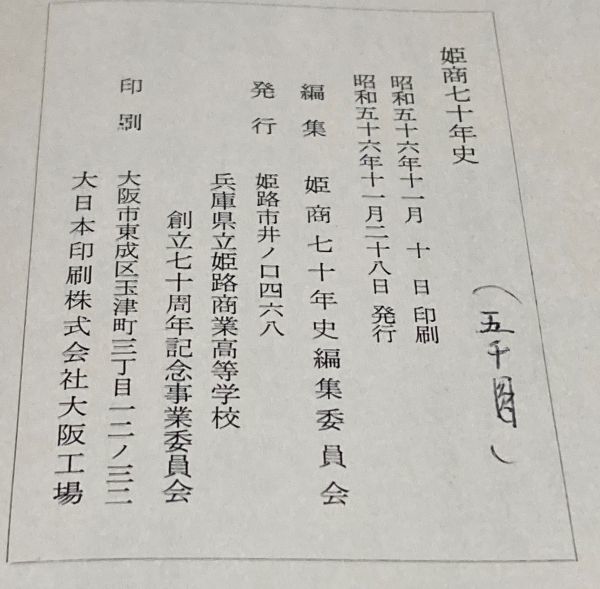 姫商七十年史
(五千円)
昭和五十六年十一月 十 日 印刷
昭和五十六年十一月二十八日 発行
編集 姫商七十年史編集委員会
発行 姫路市井ノ口四六八
兵庫県立姫路商業高等学校
創立七十周年記念事業委員会
印刷 大阪市東成区玉津町三丁目一二ノ三二
大日本印刷株式会社大阪工場